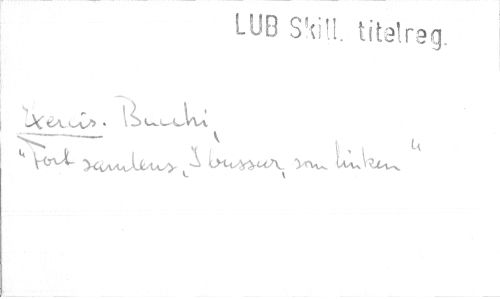 LUB Skill. titelreg.
Exercis. Bucchi,
"Fort samlens, I bussar, som linken"